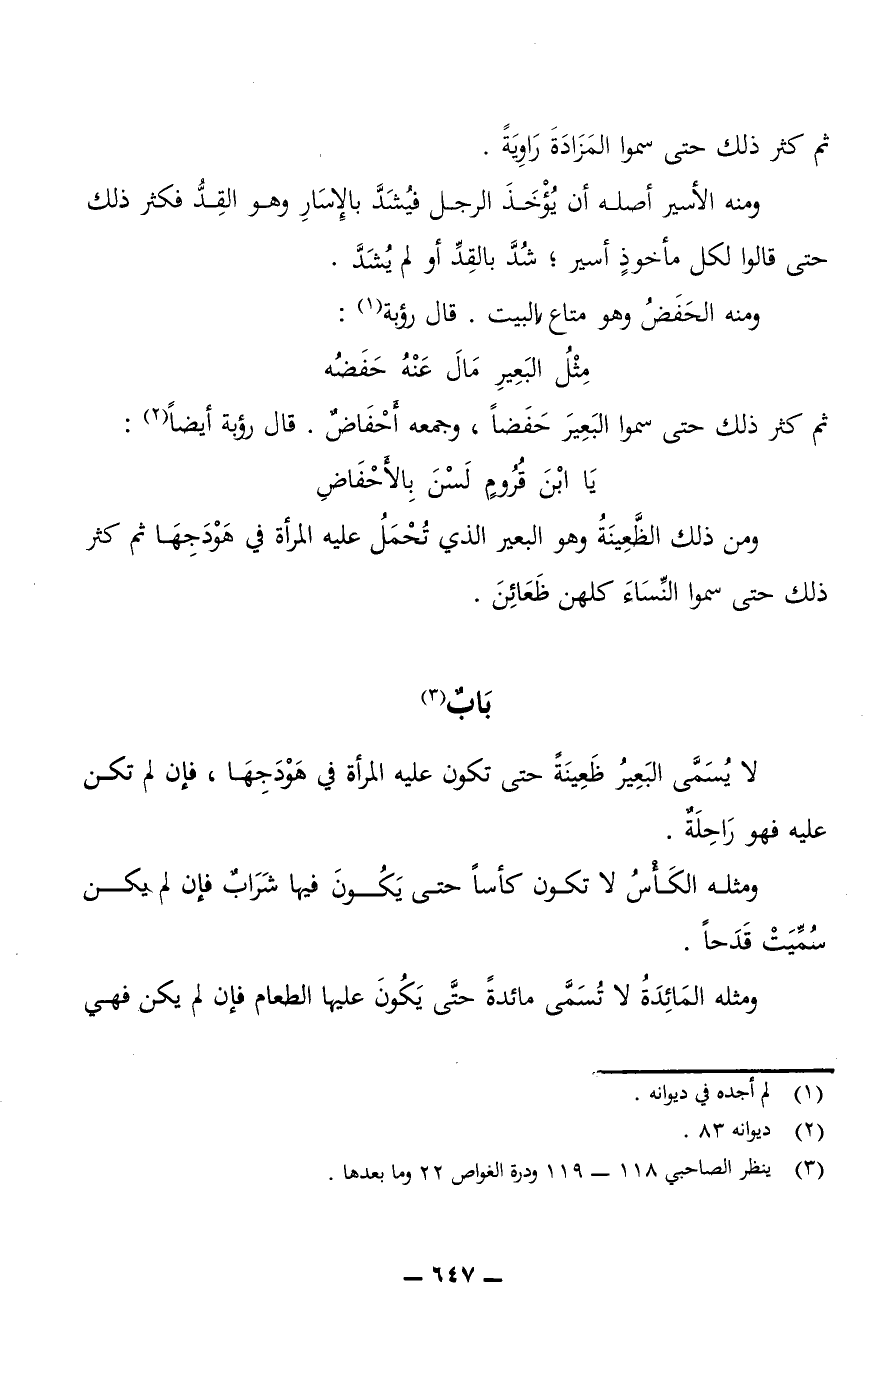 ثم كثر ذلك حتى سموا المَزَادَةَ رَاوِيَةً .
ومنه الأسير أصله أن يُؤْخَذَ الرجل فَيُشَدَّ بالإِسَارِ وهو القِدُّ فكثر ذلك
حتى قالوا لكل مأخوذٍ أسير ؛ شُدَّ بالقِدِّ أو لم يُشَدَّ .
ومنه الحَفَضُ وهو متاع البيت . قال رؤبة(١) :
مِثْلُ البَعِيرِ مَالَ عَنْهُ حَفَضُه
ثم كثر ذلك حتى سموا البَعِيرَ حَفَضاً ، وجمعه أَحْفَاضٌ . قال رؤبة أيضاً(٢) :
يَا ابْنَ قُرُومٍ لَسْنَ بِالأَحْفَاضِ
ومن ذلك الظَّعِينَةُ وهو البعير الذي تُحْمَلُ عليه المرأة في هَوْدَجِهَا ثم كثر
ذلك حتى سموا النِّسَاءَ كلهن ظَعَائِنَ .
بَابٌ(٣)
لا يُسَمَّى البَعِيرُ ظَعِينَةً حتى تكون عليه المرأة في هَوْدَجِهَا ، فإن لم تكن
عليه فهو رَاحِلَةٌ .
ومثله الكَأْسُ لا تكون كأساً حتى يَكُونَ فيها شَرَابٌ فإن لم يكن
سُمِّيَتْ قَدَحاً .
ومثله المَائِدَةُ لا تُسَمَّى مائدةً حتَّى يَكُونَ عليها الطعام فإن لم يكن فهي
(١) لم أجده في ديوانه .
(٢) ديوانه ٨٣ .
(٣) ينظر الصاحبي ١١٨ — ١١٩ ودرة الغواص ٢٢ وما بعدها .
— ٦٤٧ —